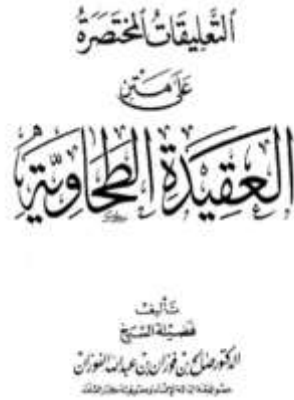 التَّعْلِيقَاتُ المُخْتَصَرَةُ
عَلَى مَتْنِ
العَقِيدَةِ الطَّحَاوِيَّةِ
تأليف
فضيلة الشيخ
الدكتور صالح بن فوزان بن عبدالله الفوزان